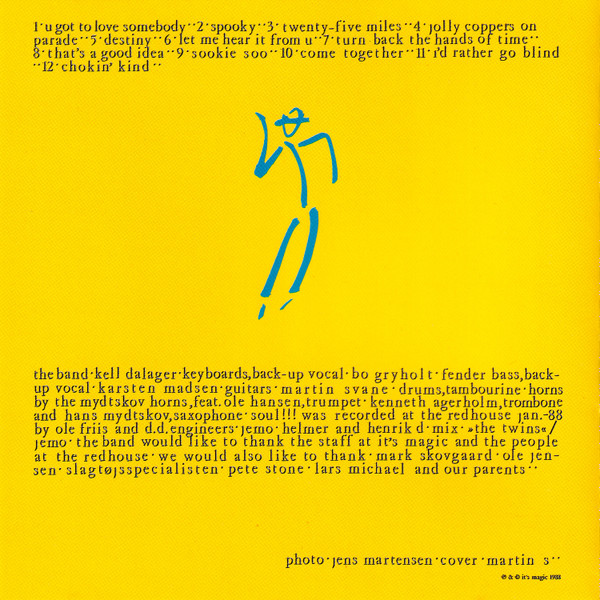 1·u got to love somebody··2·spooky··3·twenty-five miles··4·jolly coppers on
parade··5·destiny··6·let me hear it from u··7·turn back the hands of time··
8·that's a good idea··9·sookie soo··10·come together··11·i'd rather go blind
··12·chokin' kind··
the band·kell dalager·keyboards,back-up vocal·bo gryholt·fender bass,back-
up vocal·karsten madsen·guitars·martin svane·drums,tambourine·horns
by the mydtskov horns,feat.ole hansen,trumpet·kenneth agerholm,trombone
and hans mydtskov,saxophone·soul!!! was recorded at the redhouse jan.-88
by ole friis and d.d.engineers·jemo·helmer and henrik d·mix·»the twins«/
jemo·the band would like to thank the staff at it's magic and the people
at the redhouse·we would also like to thank·mark skovgaard·ole jen-
sen·slagtøjsspecialisten·pete stone·lars michael and our parents··
photo·jens martensen·cover·martin s··
℗ & © it's magic 1988